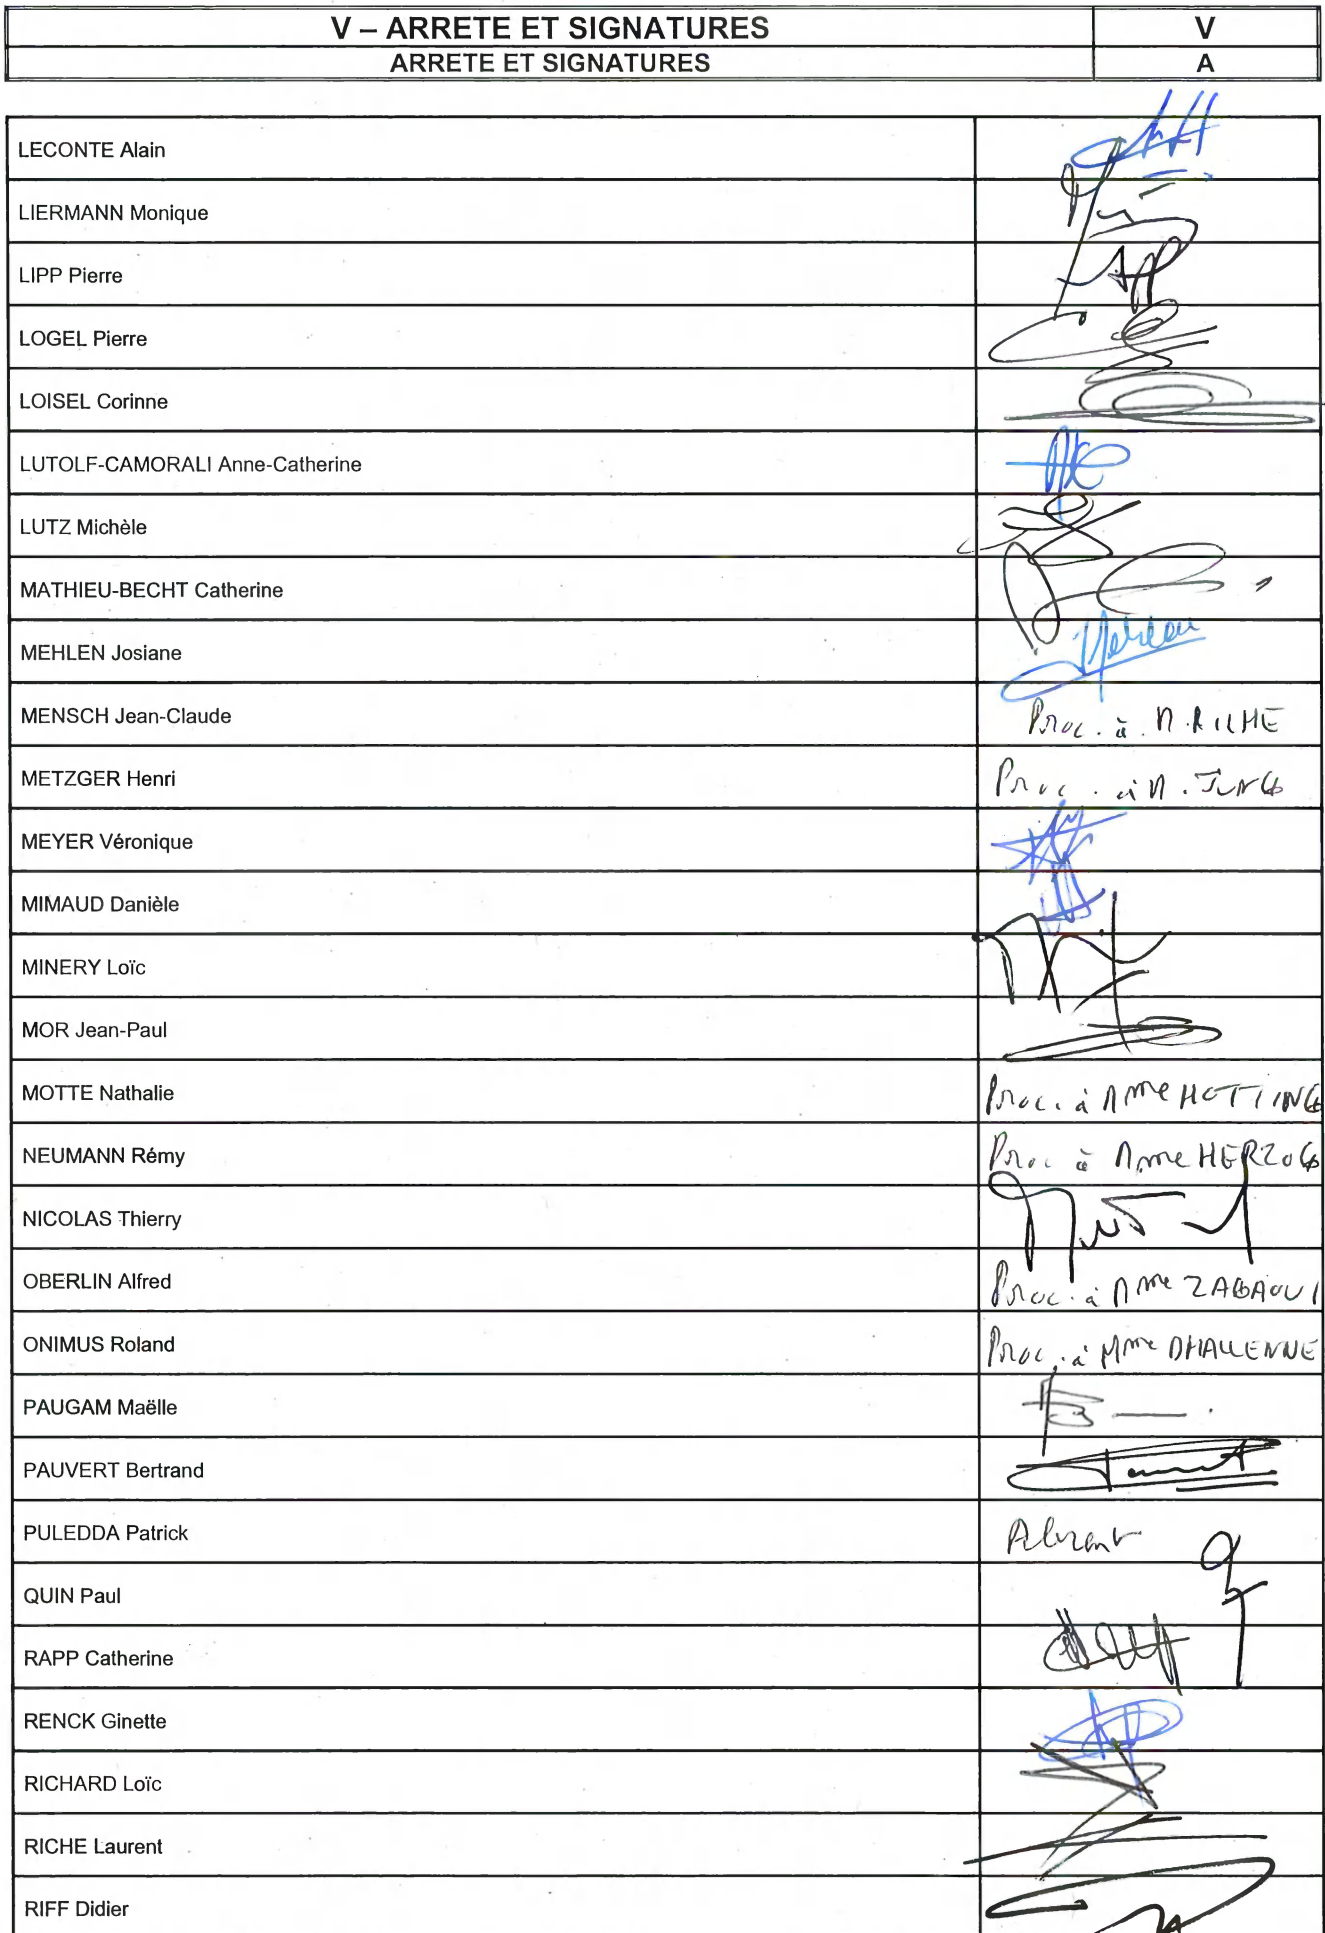 V – ARRETE ET SIGNATURES V
ARRETE ET SIGNATURES A
LECONTE Alain
LIERMANN Monique
LIPP Pierre
LOGEL Pierre
LOISEL Corinne
LUTOLF-CAMORALI Anne-Catherine
LUTZ Michèle
MATHIEU-BECHT Catherine
MEHLEN Josiane
MENSCH Jean-Claude Proc. à M. RICHE
METZGER Henri Proc. à M. JUNG
MEYER Véronique
MIMAUD Danièle
MINERY Loïc
MOR Jean-Paul
MOTTE Nathalie Proc. à Mme HOTTING
NEUMANN Rémy Proc à Mme HERZOG
NICOLAS Thierry
OBERLIN Alfred Proc. à Mme ZAGAOUI
ONIMUS Roland Proc. à Mme DHALLENNE
PAUGAM Maëlle
PAUVERT Bertrand
PULEDDA Patrick Absent
QUIN Paul
RAPP Catherine
RENCK Ginette
RICHARD Loïc
RICHE Laurent
RIFF Didier